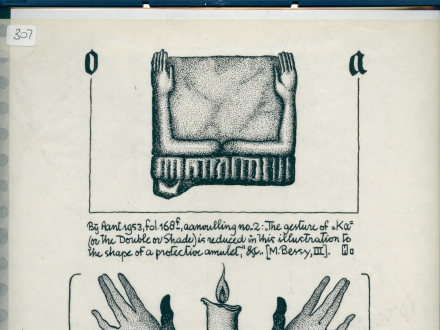 307
o a
Bij Aant 1953, fol. 168ᵛ, aanvulling no. 2: "The gesture of "Ka"
(or the Double or Shade) is reduced in this illustration to
the shape of a protective amulet," &c. [M. Bessy, III].